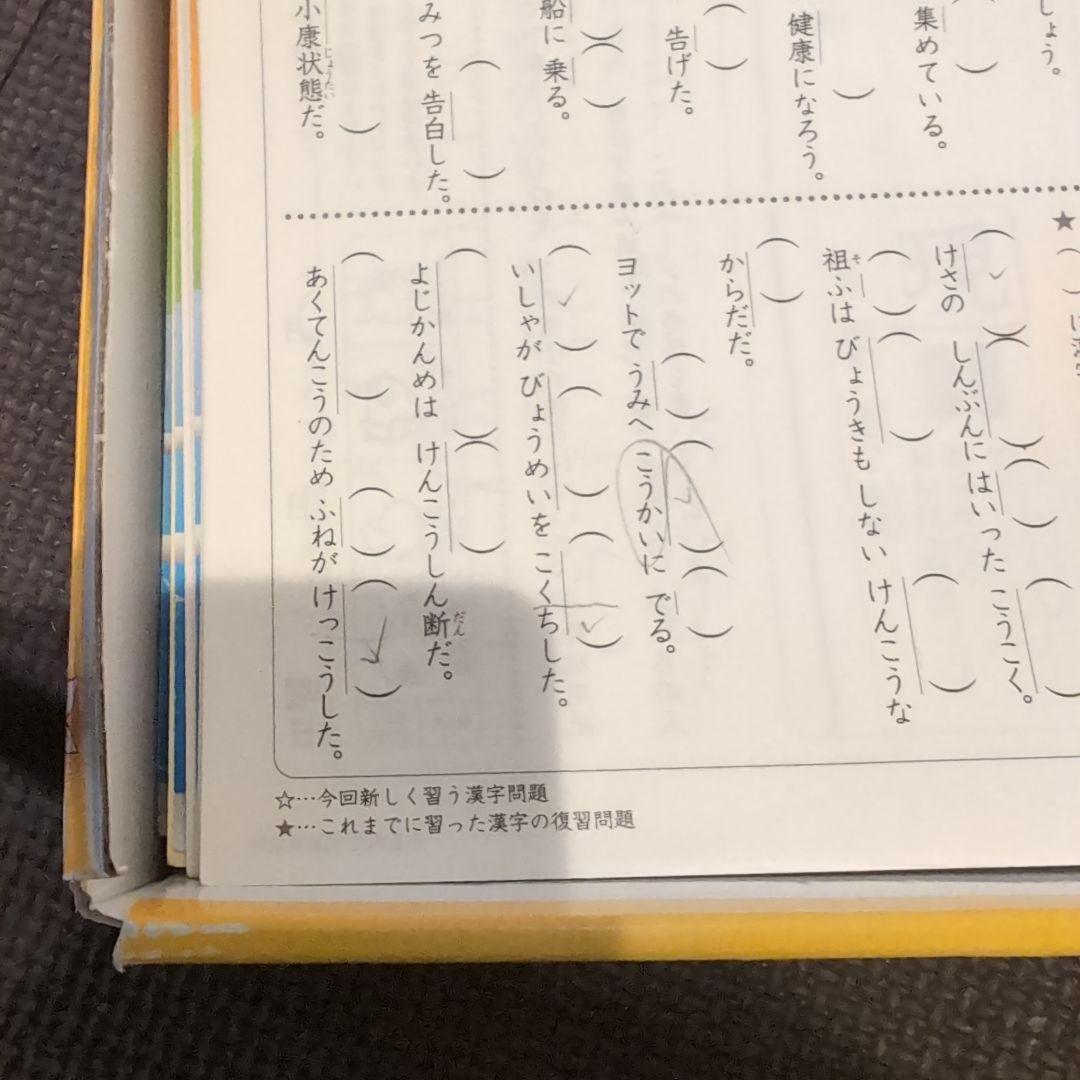 しょう。
集めている。
健康になろう。
告げた。
船に乗る。
みつを告白した。
小康状態だ。
じょうたい
★
けさの しんぶんに はいった こうこく。
祖ふは びょうきも しない けんこうな
そ
からだだ。
ヨットで うみへ こうかいに でる。
いしゃが びょうめいを こくちした。
よじかんめは けんこうしん断だ。
だん
あくてんこうのため ふねが けっこうした。
☆…今回新しく習う漢字問題
★…これまでに習った漢字の復習問題